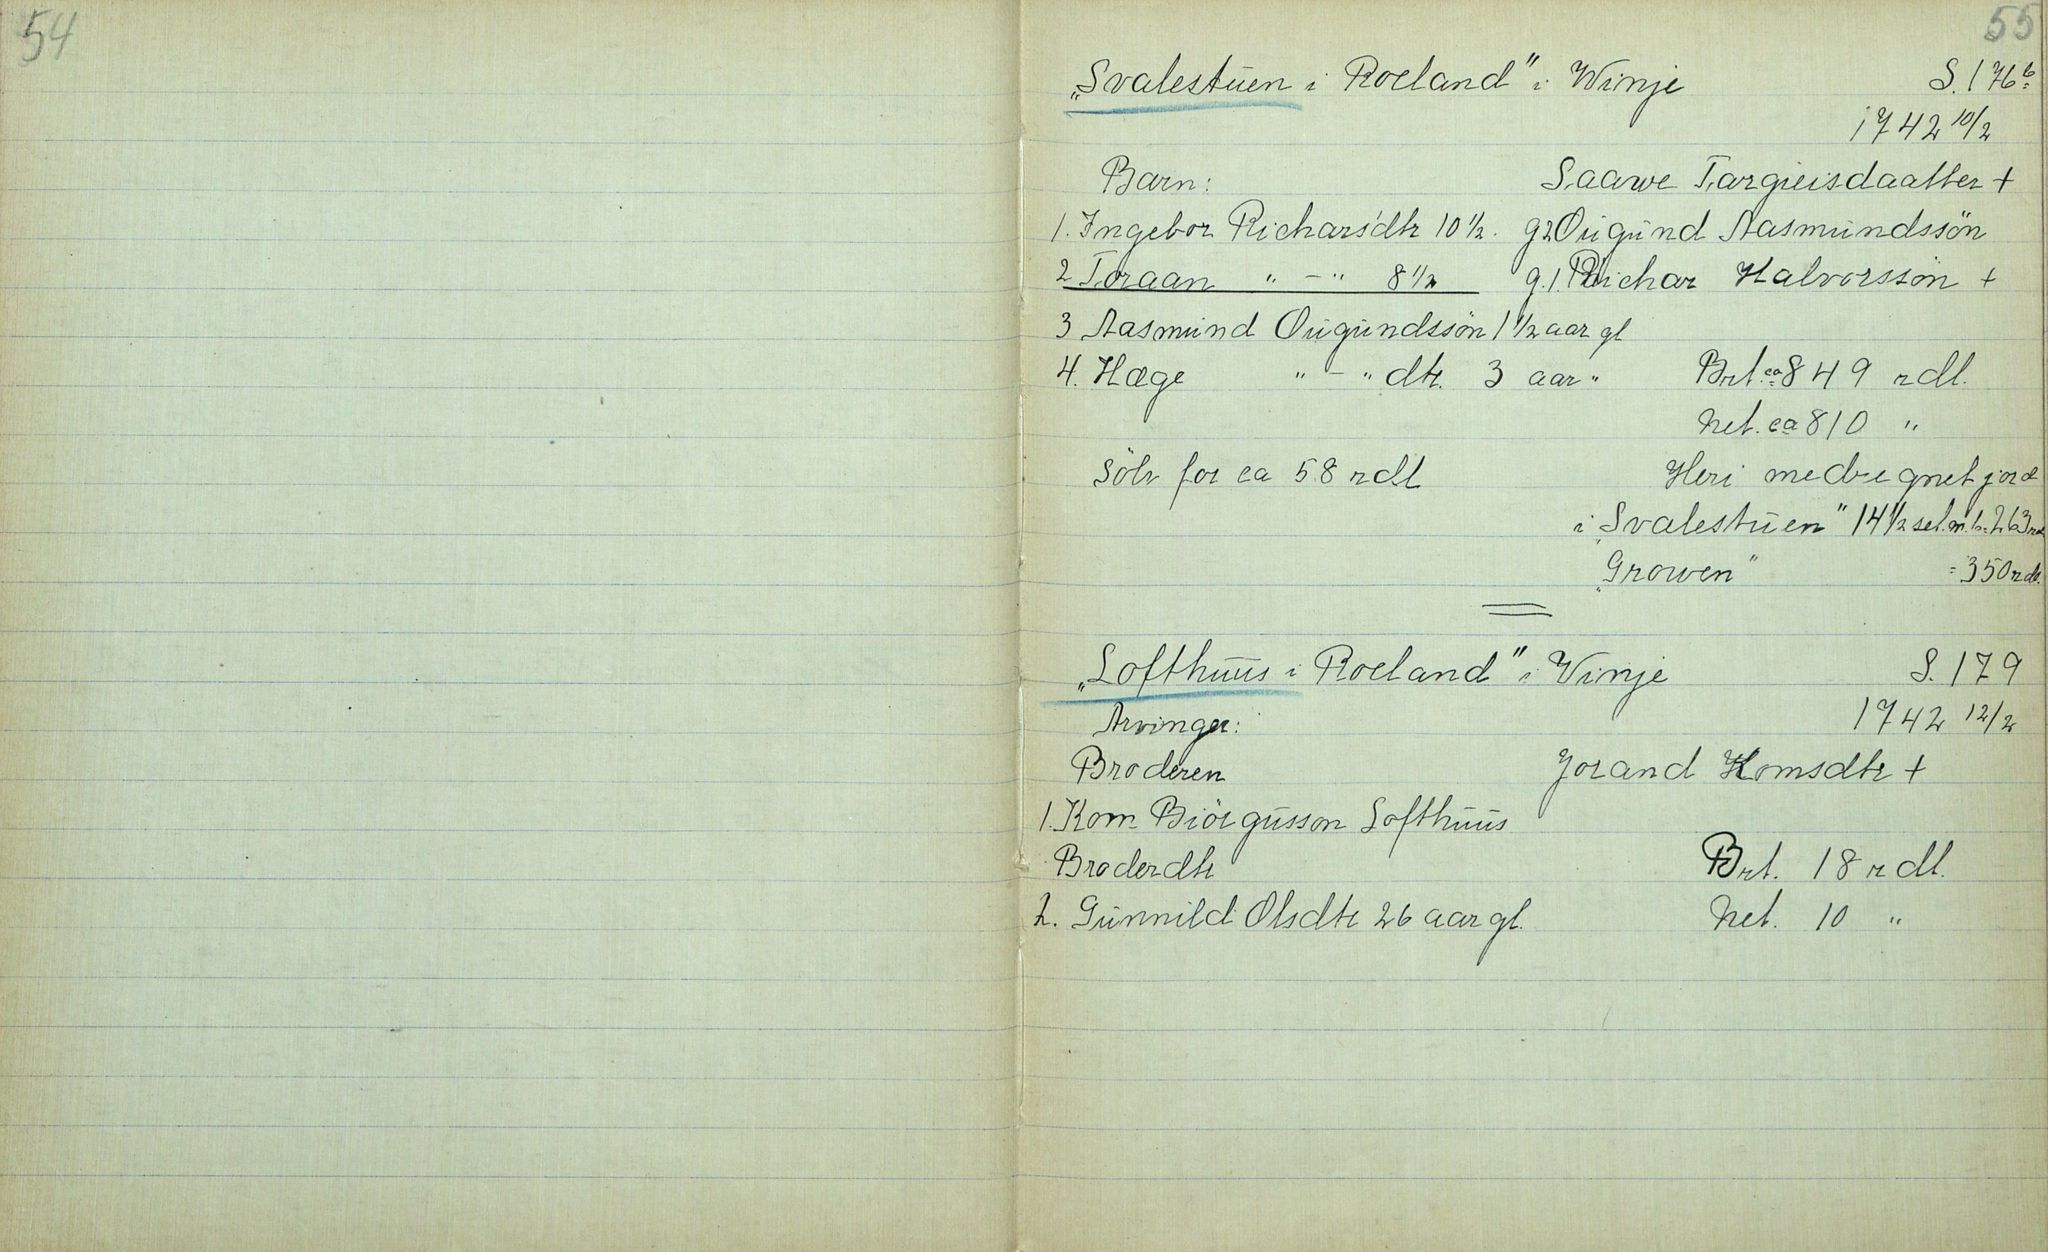 54
55
„Svalestuen i Roeland" i Winje S. 176b
1742 10/2
Barn: Saawe Targieisdaatter +
1. Ingebor Richarsdtr 10 1/2. g2 Ougund Aasmundssön
2 Toraan " – " 8 1/2 g.1. Richar Halvorssön +
3 Aasmund Ougundssön 1 1/2 aar gl
4. Hæge " – " dtr. 3 aar " Brt. ca 849 rdl.
Net. ca 810 "
Sölv for ca 58 rdl Heri medregnet jord
i „Svalestuen" 14 1/2 set. m. b = 263 rdl
„Growen" = 350 rdl.
„Lofthuus i Roeland" i Vinje S. 179
Arvinger: 1742 12/2
Broderen Jorand Komsdtr +
1. Kom Biörgusson Lofthuus
Broderdtr Brt. 18 rdl.
2. Gunnild Olsdtr 26 aar gl. Net. 10 "